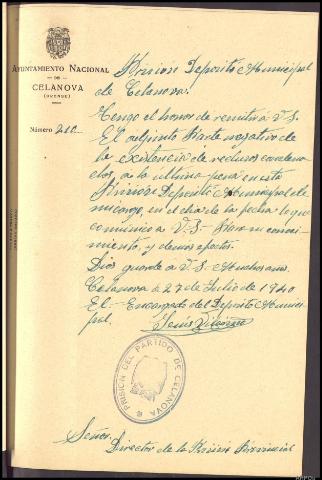 AYUNTAMIENTO NACIONAL
DE
CELANOVA
(ORENSE)
Número 210
Prision Deposito Municipal
de Celanova.
Tengo el honor de remitir á V.S.
El adjunto Parte negativo de
la existencia de reclusos condena
dos, a la ultima pena en esta
Prision Deposito Municipal de
mi cargo, en el dia de la fecha lo que
comunico a V.S. Para su conoci
miento, y demas efectos.
Dios guarde a V.S. Muchos años.
Celanova a 27 de Julio de 1940
El Encargado del Deposito Munici
pal.
Jesús
PRISION DEL PARTIDO DE CELANOVA
Señor.
Director de la Prision Provincial